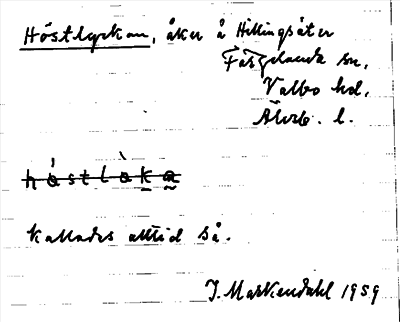 Höstlyckan, åker å Hillingsäter
Färgelanda sn,
Valbo hd,
Älvsb. l.
Kallades alltid så.
J. Markendahl 1959